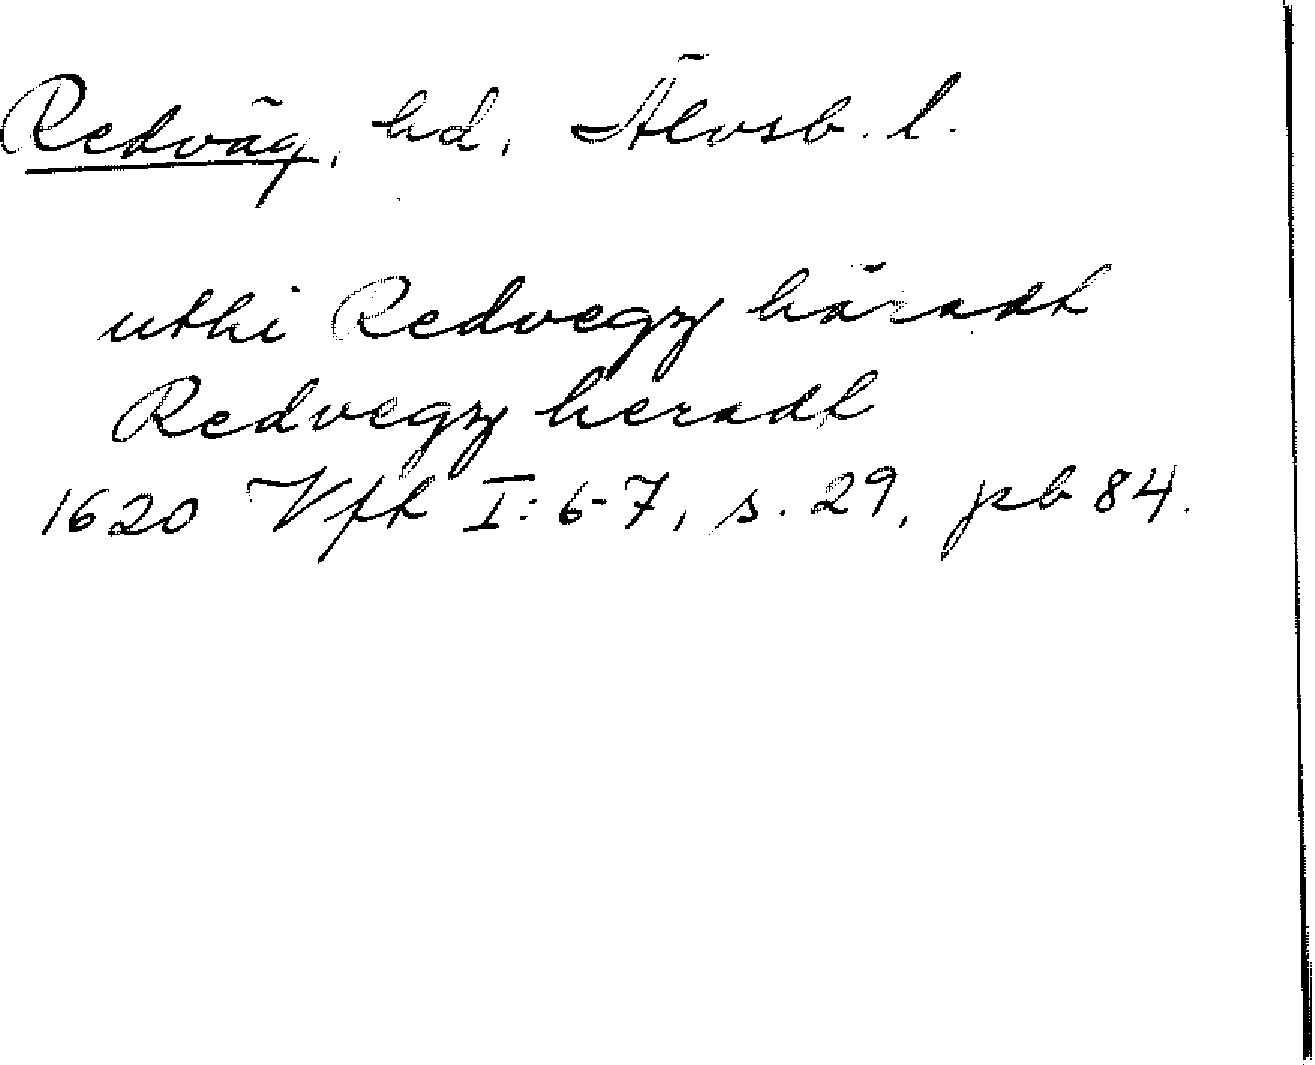 Redväg, hd, Älvsb. l.
uthi Redvegz häradh
Redvegz heradh
1620 Vfh I: 6-7, s. 29, pb 84.